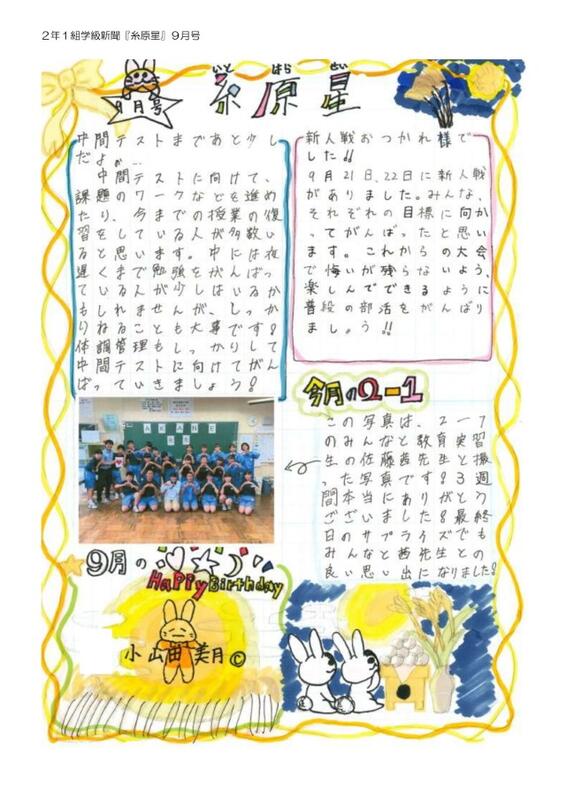 2年1組学級新聞『糸原星』9月号
9月号
いと はら せい
糸原星
中間テストまであと少し
だよ
中間テストに向けて、
課題のワークなどを進め
たり、今までの授業の復
習をしている人が多数い
ると思います。中には夜
遅くまで勉強をがんばっ
ている人が少しはいるか
もしれませんが、しっか
りねることも大事です!
体調管理もしっかりして
中間テストに向けてがん
ばっていきましょう!
新人戦おつかれ様で
した!!
9月21日、22日に新人戦
がありました。みんな、
それぞれの目標に向か
ってがんばったと思い
ます。これからの大会
で悔いが残らないよう、
楽しんでできるように
普段の部活をがんばり
ましょう!!
今月の2-1
この写真は、2-1
のみんなと教育実習
生の佐藤茜先生と撮
った写真です!3週
間本当にありがとう
ございました!最終
日のサプライズでも
みんなと茜先生との
良い思い出になりました!
AKANE
9月の
HaPPy Birthday
小山田美月©